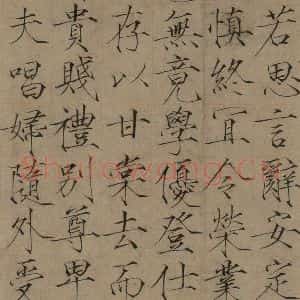 若思言辭安定
慎終宜令榮業
無竟學優登仕
存以甘棠去而
貴賤禮別尊卑
夫唱婦隨外受
Shufawang.Cn